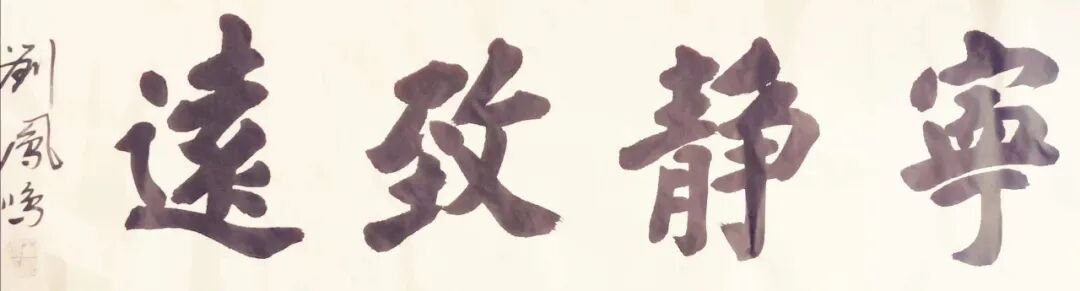 寧靜致遠
劉鳳鳴